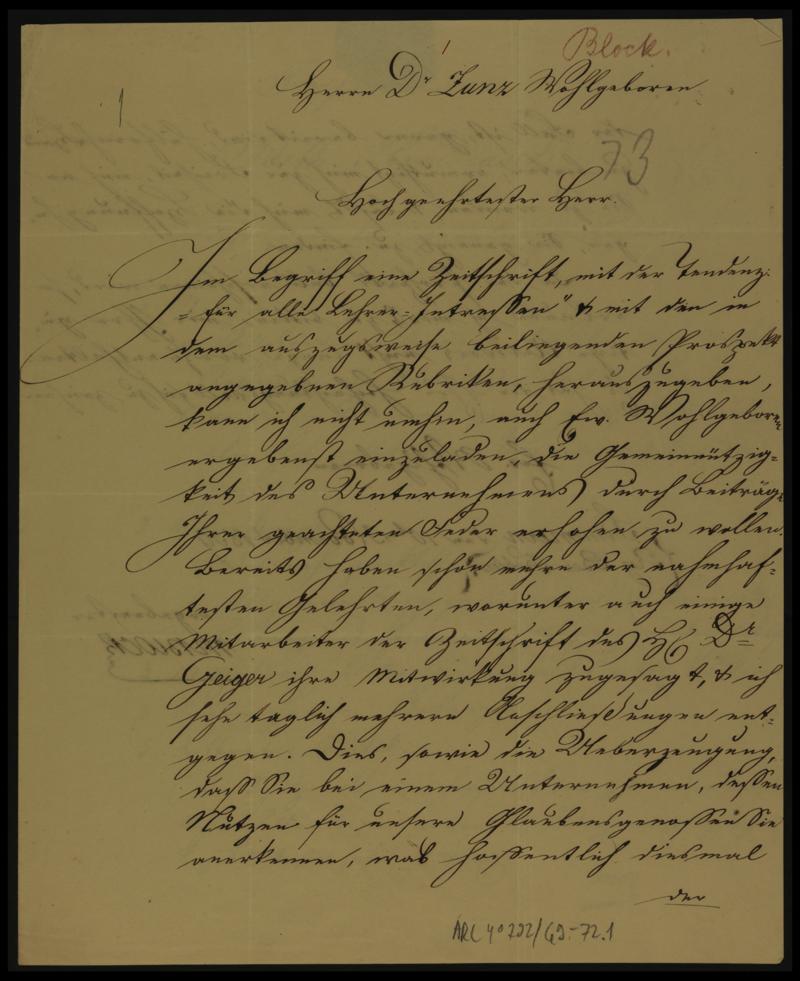 Block.
1
Herrn Dr Zunz Wohlgeboren
73
Hochgeehrtester Herr.
Im Begriff eine Zeitschrift, mit der Tendenz:
"für alle Lehrer-Intressen" & mit den in
dem auszugsweise beiliegenden Prospekt
angegebnen Rubriken, herauszugeben,
kann ich nicht umhin, auch Ew. Wohlgeboren
ergebenst einzuladen, die Gemeinnützig-
keit des Unternehmens durch Beiträge
Ihrer geachteten Feder erhöhen zu wollen.
Bereits haben schon mehre der nahmhaf-
testen Gelehrten, worunter auch einige
Mitarbeiter der Zeitschrift des H Dr
Geiger ihre Mitwirkung zugesagt, & ich
sehe täglich mehrern Anschließungen ent-
gegen. Dies, sowie die Ueberzeugung,
dass Sie bei einem Unternehmen, dessen
Nutzen für unsere Glaubensgenossen Sie
anerkennen, was hoffentlich diesmal
der
ARC 4º 792/G9-72.1